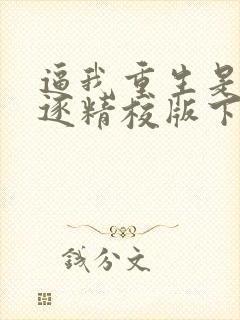 逼我重生是
逐精校版下
钱分文